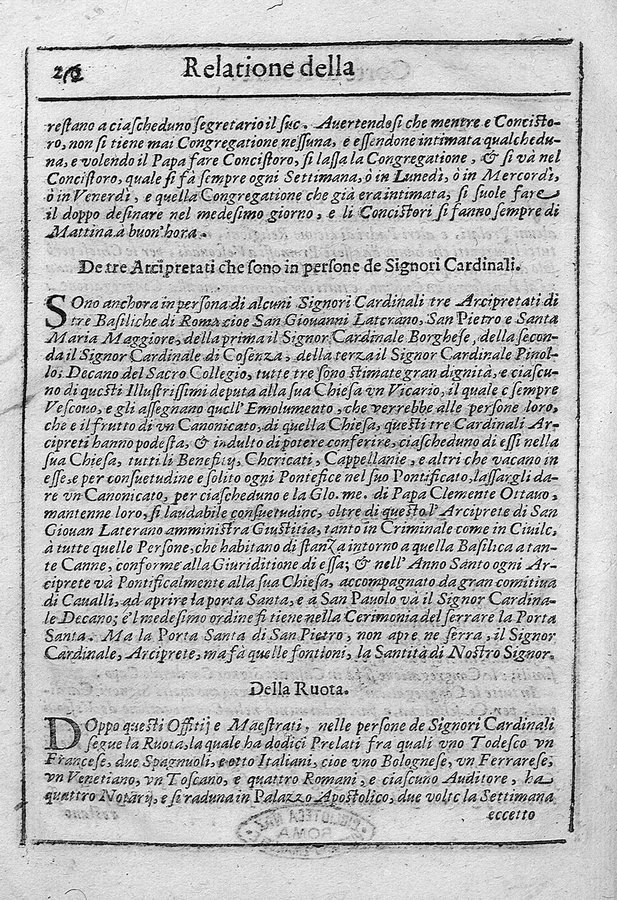 Relatione della
restano a ciascheduno segretario il suc. Auertendosi che mentre e Concisto-
ro, non si tiene mai Congregatione nessuna, e essendone intimata qualchedu-
na, e volendo il Papa fare Concistoro, si lassa la Congregatione, & si và nel
Concistoro, quale si fà sempre ogni Settimana, ò in Lunedì, ò in Mercordì,
ò in Venerdì, e quella Congregatione che già era intimata, si suole fare
il doppo desinare nel medesimo giorno, e li Concistori si fanno sempre di
Mattina à buon'hora.
De tre Arcipretati che sono in persone de Signori Cardinali.
SOno anchora in persona di alcuni Signori Cardinali tre Arcipretati di
tre Basiliche di Roma cioe San Giouanni Laterano, San Pietro e Santa
Maria Maggiore, della prima il Signor Cardinale Borghese, della secon-
da il Signor Cardinale di Cosenza, della terza il Signor Cardinale Pinol-
lo, Decano del Sacro Collegio, tutte tre sono stimate gran dignità, e ciascu-
no di questi Illustrissimi deputa alla sua Chiesa vn Vicario, il quale e sempre
Vescouo, e gli assegnano quell'Emolumento, che verrebbe alle persone loro,
che e il frutto di vn Canonicato, di quella Chiesa, questi tre Cardinali Ar-
cipreti hanno podesta, & indulto di potere conferire, ciascheduno di essi nella
sua Chiesa, tutti li Benefitij, Chericati, Cappellanie, e altri che vacano in
esse, e per consuetudine e solito ogni Pontefice nel suo Pontificato, lassargli da-
re vn Canonicato, per ciascheduno e la Glo. me. di Papa Clemente Ottauo,
mantenne loro, si laudabile consuetudine, oltre di questo l'Arciprete di San
Giouan Laterano amministra Giustitia, tanto in Criminale come in Ciuile,
à tutte quelle Persone, che habitano di stanza intorno a quella Basilica a tan-
te Canne, conforme alla Giuriditione di essa; & nell'Anno Santo ogni Ar-
ciprete và Pontificalmente alla sua Chiesa, accompagnato da gran comitiua
di Caualli, ad aprire la porta Santa, e a San Pauolo và il Signor Cardina-
le Decano; e'l medesimo ordine si tiene nella Cerimonia del serrare la Porta
Santa. Ma la Porta Santa di San Pietro, non apre ne serra, il Signor
Cardinale, Arciprete, ma fà quelle fontioni, la Santità di Nostro Signor.
Della Ruota.
DOppo questi Offitij e Maestrati, nelle persone de Signori Cardinali
segue la Ruota, la quale ha dodici Prelati fra quali vno Todesco vn
Francese, due Spagnuoli, e otto Italiani, cioe vno Bolognese, vn Ferrarese,
vn Venetiano, vn Toscano, e quattro Romani, e ciascuno Auditore, ha
quattro Notarij, e si raduna in Palazzo Apostolico, due volte la Settimana
eccetto